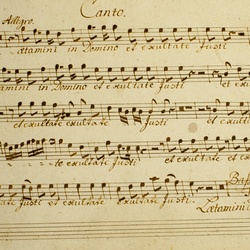 Canto.
Allegro.
ætamini in Domino et exultate Justi
tamini in Domino et exultate Justi et ex
et exultate Justi et exul
te exultate Justi et exultate ex
tate Justi et exultate exultate Justi.
Lætamini